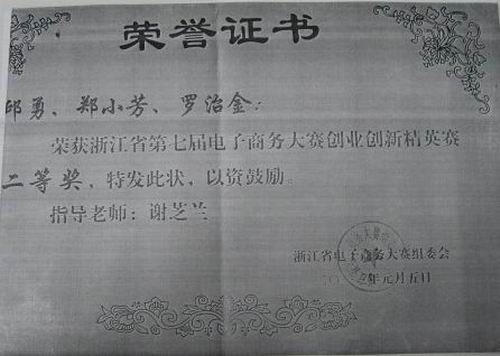 荣誉证书
邱勇、郑小芳、罗治金：
荣获浙江省第七届电子商务大赛创业创新精英赛
二等奖，特发此状，以资鼓励。
指导老师：谢芝兰
浙江省电子商务大赛组委会
年元月五日